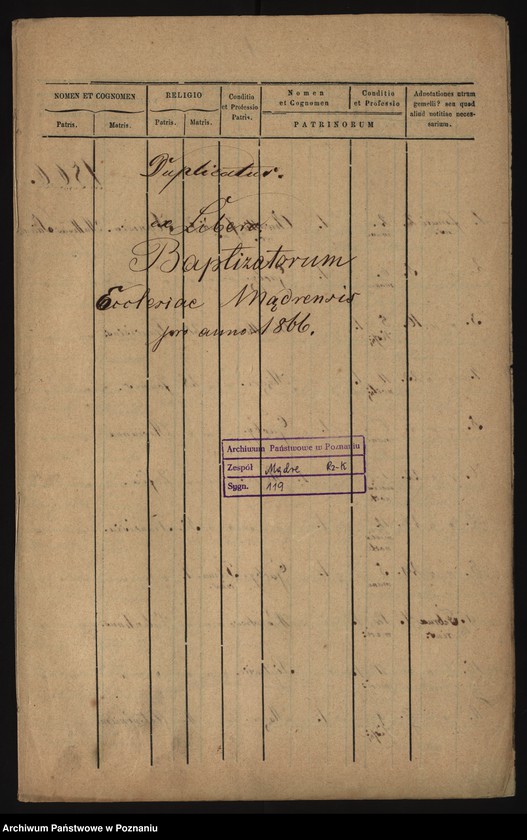 NOMEN ET COGNOMEN
RELIGIO
Conditio et Professio Patris.
Nomen et Cognomen
Conditio et Professio
Adnotationes utrum gemelli? seu quad aliud notitiae necessarium.
Patris.
Matris.
Patris.
Matris.
PATRINORUM
Duplicatus.
ex Libro
Baptizatorum
Ecclesiae Mądrensis
pro anno 1866.
Archiwum Państwowe w Poznaniu
Zespół Mądre Rz-K
Sygn. 119
Archiwum Państwowe w Poznaniu